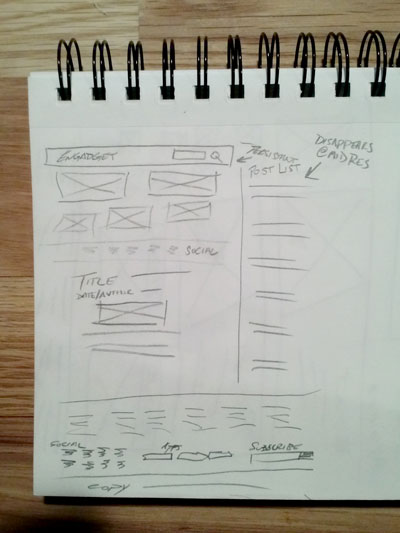 ENGADGET Q
PERSISTENT
POST LIST
DISAPPEARS
@ MID RES
SOCIAL
TITLE
DATE/AUTHOR
SOCIAL
APPS
SUBSCRIBE
COPY